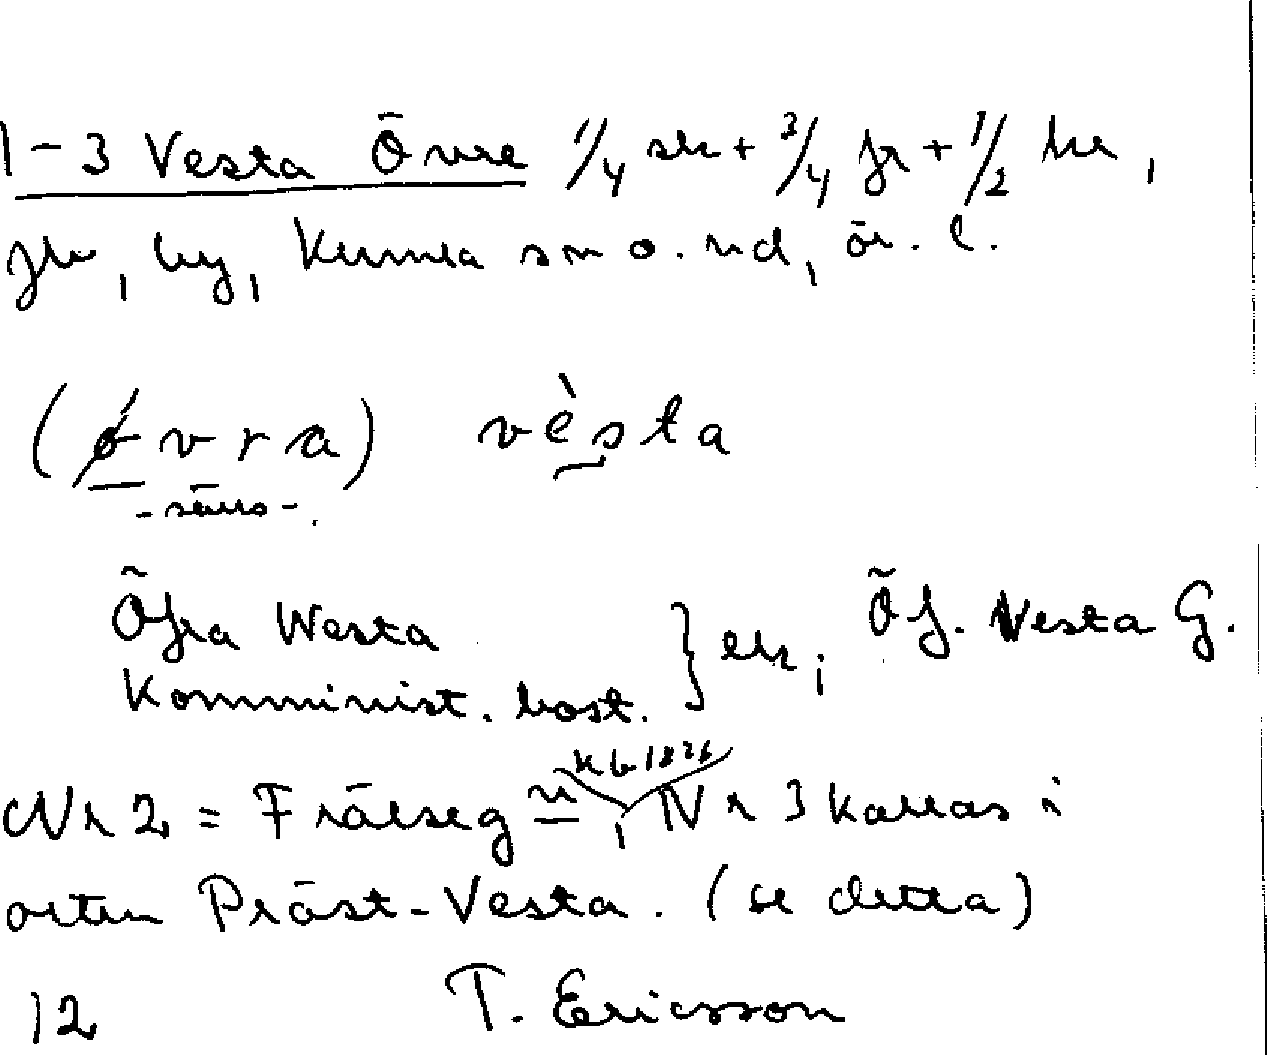 1-3 Vesta Övre 1/4 sk + 3/4 fr + 1/2 kr,
by, Kumla sn o. hd, ör. l.
(øvra) vèsta
Öfra Westa
Komminist. bost. } ek; Öf. Vesta G.
kb 1826
Nr 2 = Frälseg n, Nr 3 kallas i
orten Präst-Vesta. (se detta)
12 T. Ericsson